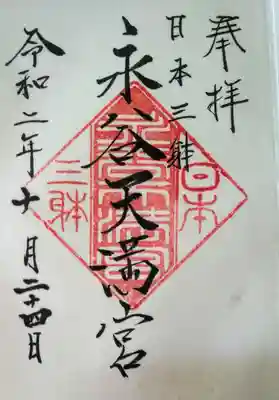 奉拝
日本三躰
永谷天満宮
日本
三躰
令和二年十月二十四日